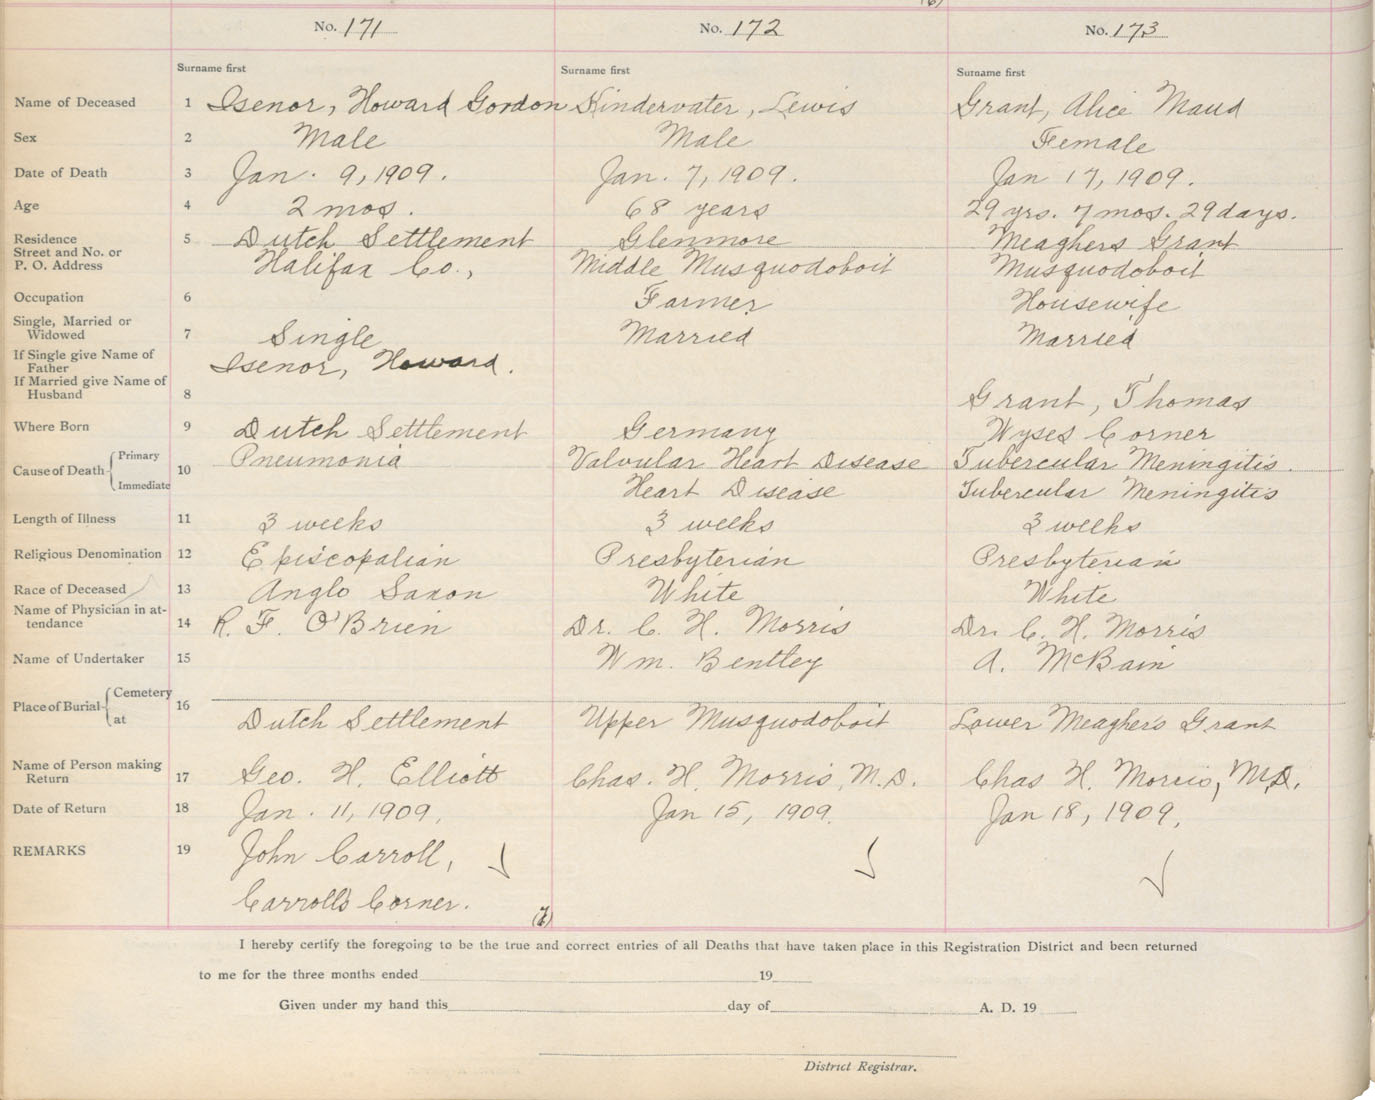 No. 171 No. 172 No. 173
Surname first Surname first Surname first
Name of Deceased 1 Isenor, Howard Gordon Kindervater, Lewis Grant, Alice Maud
Sex 2 Male Male Female
Date of Death 3 Jan. 9, 1909. Jan. 7, 1909. Jan 17, 1909.
Age 4 2 mos. 68 years 29 yrs. 7 mos. 29 days.
Residence 5 Dutch Settlement Glenmore Meaghers Grant
Street and No. or
P. O. Address Halifax Co., Middle Musquodoboit Musquodoboit
Occupation 6 Farmer Housewife
Single, Married or
Widowed 7 Single Married Married
If Single give Name of
Father Isenor, Howard.
If Married give Name of
Husband 8 Grant, Thomas
Where Born 9 Dutch Settlement Germany Wyses Corner
Cause of Death Primary 10 Pneumonia Valvular Heart Disease Tubercular Meningitis.
Immediate Heart Disease Tubercular Meningitis
Length of Illness 11 3 weeks 3 weeks 3 weeks
Religious Denomination 12 Episcopalian Presbyterian Presbyterian
Race of Deceased 13 Anglo Saxon White White
Name of Physician in at-
tendance 14 R. F. O'Brien Dr. C. H. Morris Dr. C. H. Morris
Name of Undertaker 15 Wm. Bentley A. McBain
Place of Burial Cemetery 16
at Dutch Settlement Upper Musquodoboit Lower Meagher's Grant
Name of Person making
Return 17 Geo. H. Elliott Chas. H. Morris, M.D. Chas H. Morris, M.D.
Date of Return 18 Jan. 11, 1909. Jan 15, 1909. Jan 18, 1909.
REMARKS 19 John Carroll,
Carroll's Corner.
I hereby certify the foregoing to be the true and correct entries of all Deaths that have taken place in this Registration District and been returned
to me for the three months ended 19
Given under my hand this day of A. D. 19
District Registrar.